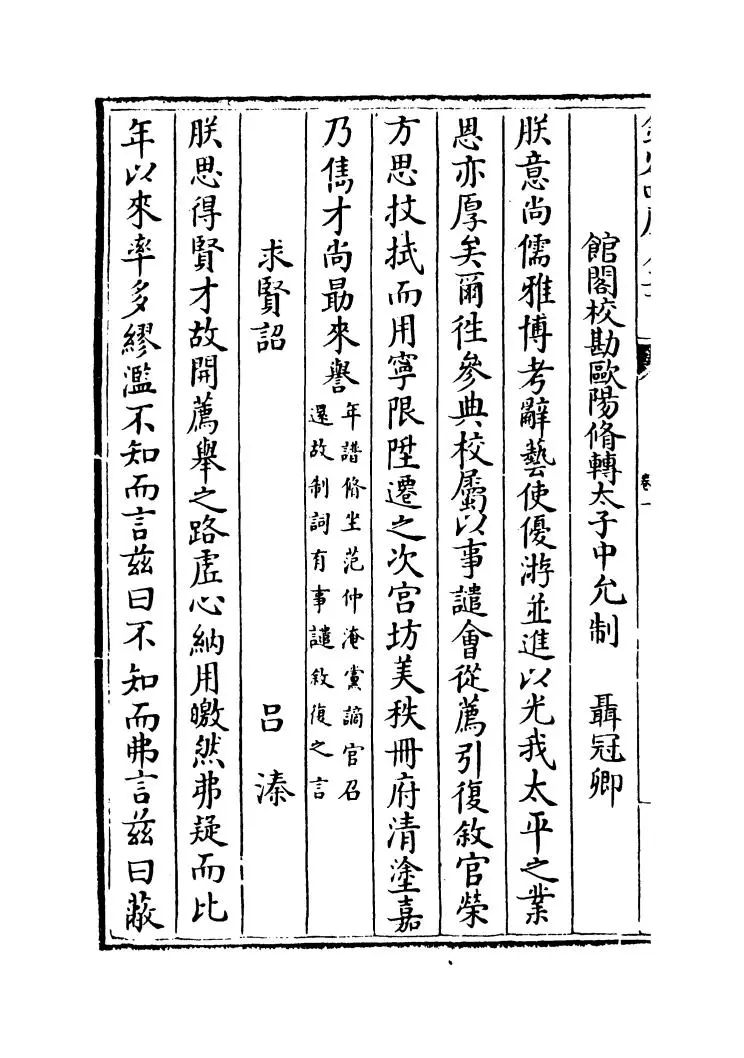 館閣校勘歐陽脩轉太子中允制　聶冠卿
朕意尚儒雅博考辭藝使優游並進以光我太平之業
恩亦厚矣爾徃參典校屬以事譴會從薦引復敘官榮
方思抆拭而用寧限陞遷之次宫坊美秩冊府清塗嘉
乃雋才尚勗來譽年譜脩坐范仲淹黨謫官召
還故制詞有事譴敘復之言
求賢詔　吕溱
朕思得賢才故開薦舉之路虚心納用曒然弗疑而比
年以來率多繆濫不知而言兹曰不知而弗言兹曰蔽